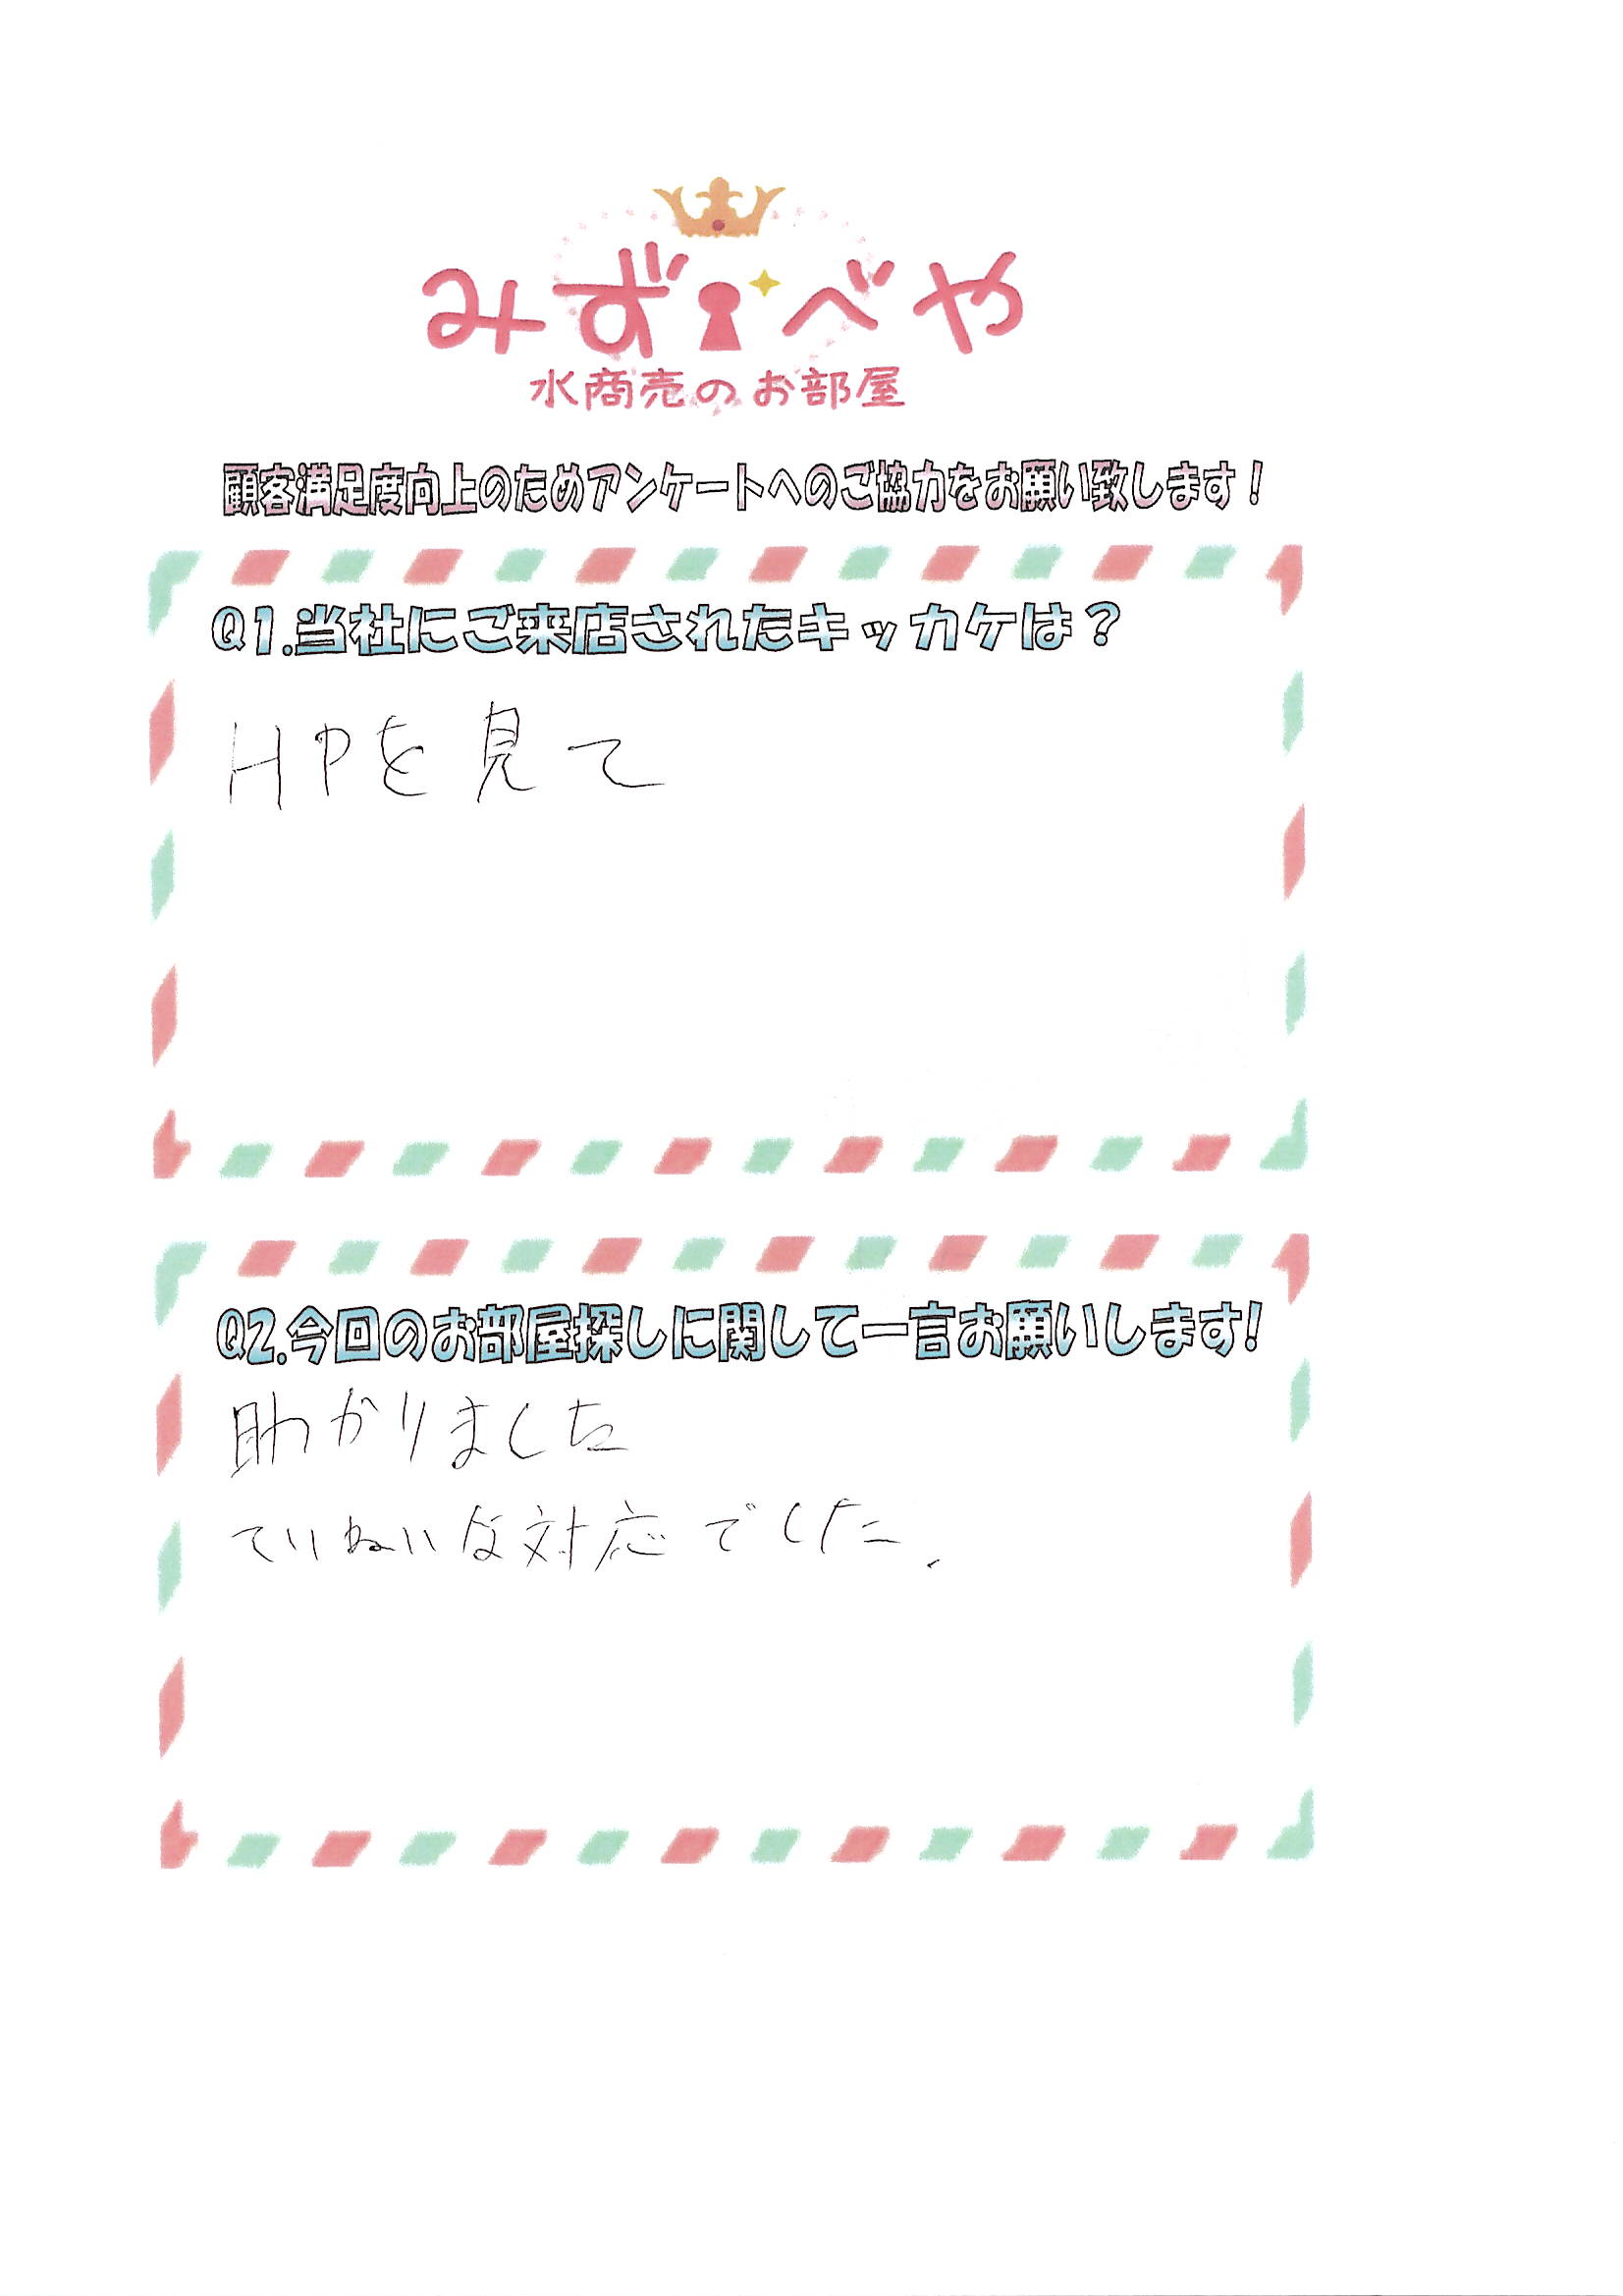 みずべや
水商売のお部屋
顧客満足度向上のためアンケートへのご協力をお願い致します！
Q1.当社にご来店されたキッカケは？
HPを見て
Q2.今回のお部屋探しに関して一言お願いします!
助かりました
ていねいな対応でした.